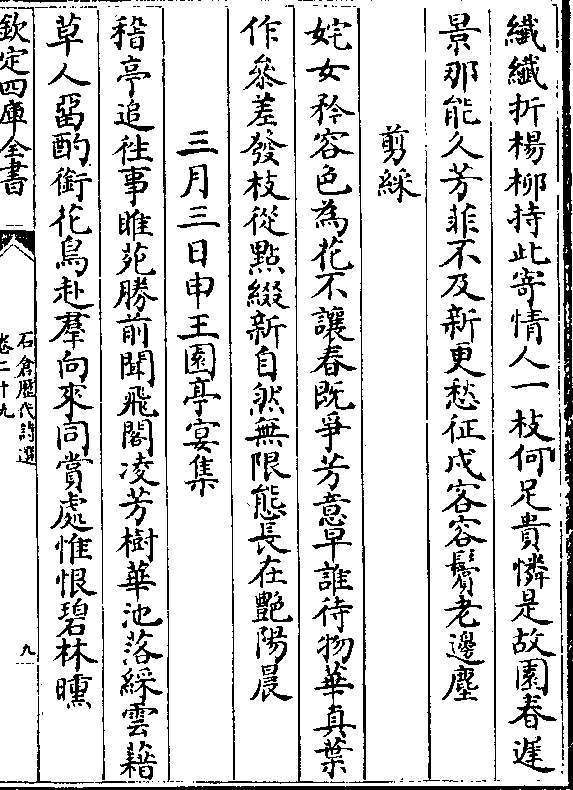 纎纎折楊柳持此寄情人一枝何足貴憐是故園春遲
景那能久芳菲不及新更愁征戍客容鬢老邊塵
剪綵
姹女矜容色為花不讓春既爭芳意早誰待物華真葉
作參差發枝從點綴新自然無限態長在艷陽晨
三月三日申王園亭宴集
稽亭追往事睢苑勝前聞飛閣凌芳樹華池落綵雲藉
草人留酌銜花鳥赴羣向來同賞處惟恨碧林曛
欽定四庫全書
石倉歴代詩選
卷二十九
九